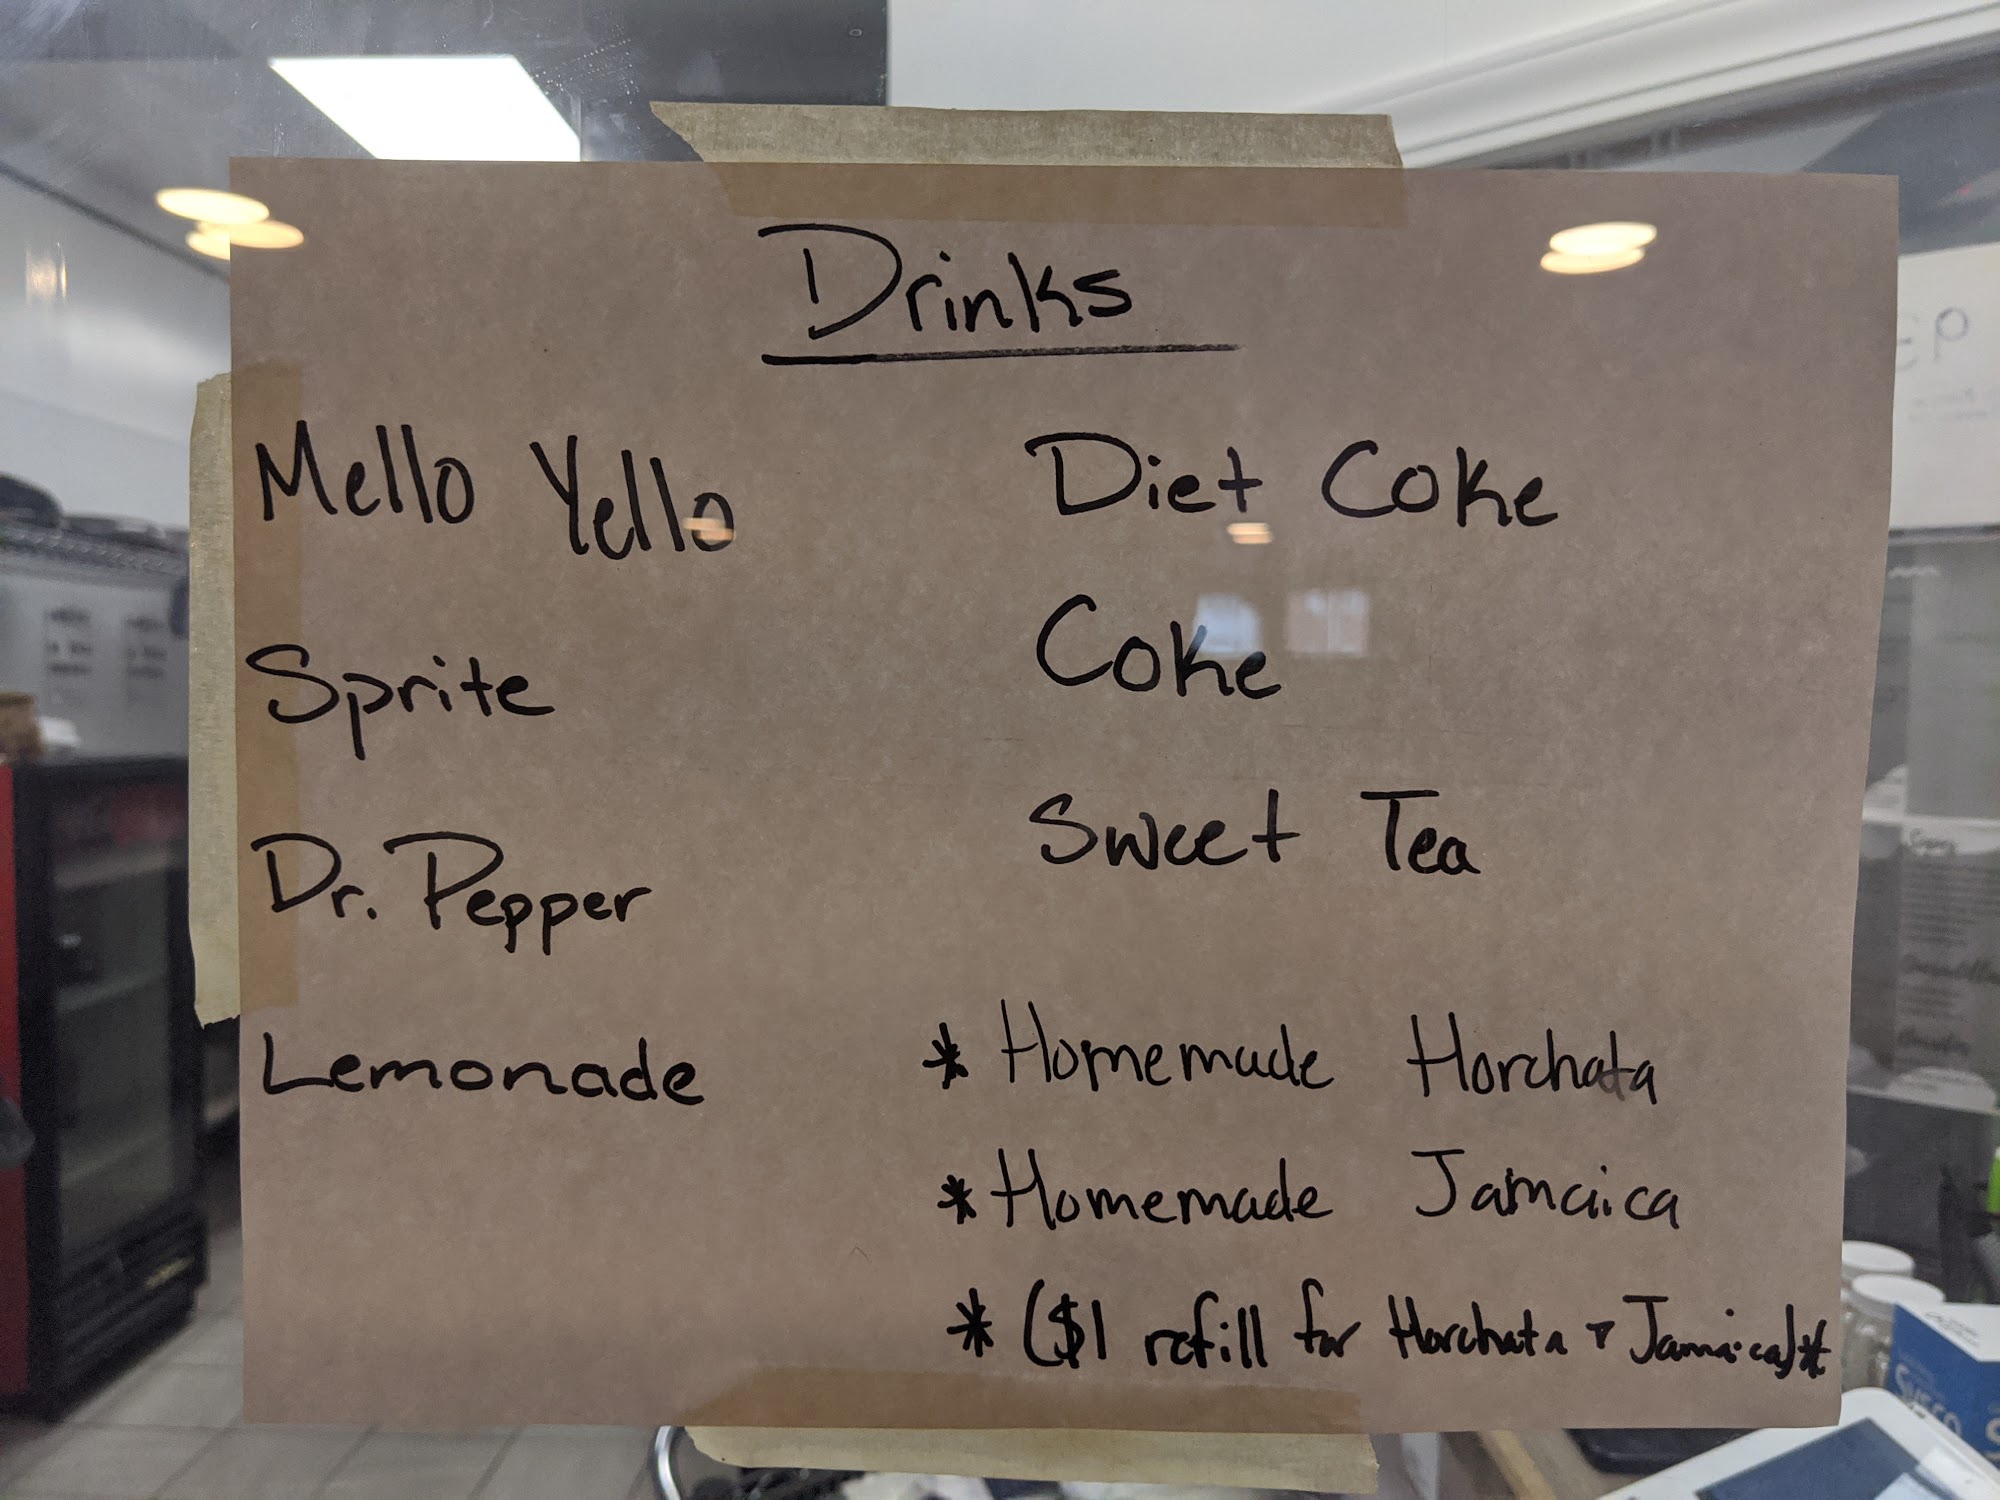 Drinks
Mello Yello
Sprite
Dr. Pepper
Lemonade
Diet Coke
Coke
Sweet Tea
* Homemade Horchata
* Homemade Jamaica
* ($1 refill for Horchata & Jamaica)*